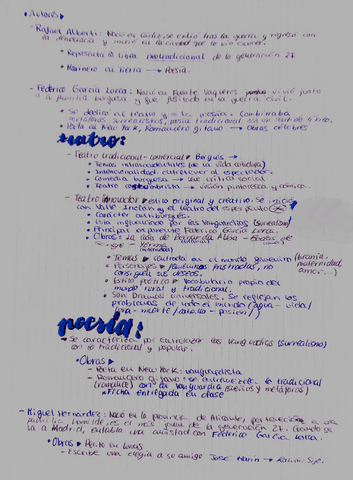 • Autores
- Rafael Alberti: Nació en Cádiz, se exilió tras la guerra y regresó con
la democracia y murió en la ciudad que lo vio nacer.
• Representa la línea neotradicional de la generación 27
• Marinero en tierra → Poesía.
- Federico García Lorca: Nació en Fuente Vaqueros vivió junto
a su familia burguesa y fue fusilado en la guerra civil.
• Se dedicó al teatro y a la poesía. Combinaba
metáforas surrealistas, poesía tradicional con un
• Poeta en New York, Romancero gitano → Obras célebres
teatro:
- Teatro tradicional-comercial Burgués →
• Temas intrascendentales (de la vida cotidiana)
• Intencionalidad: entretener al espectador.
• Comedia burguesa → crítica social
• Teatro costumbrista → visión pintoresca y cómica.
- Teatro innovador estilo original y creativo. Se inició
con Valle Inclán y el teatro del esperpento
• Carácter antiburgués.
• Está influenciado por las vanguardias (surrealismo)
• Principal exponente Federico García Lorca.
• Obras: La casa de Bernarda Alba - Bodas de
sangre - Yerma
• Temas centrado en el mundo femenino (
maternidad,
amor...)
• Personajes frustrados, no
consiguen sus deseos.
• Estilo poético Vocabulario propio del
mundo rural y tradicional.
• Son Dramas universales. Se reflejan los
problemas de todo el mundo (agua - vida/
luna - muerte / caballo - pasión/)
poesía:
→ Se caracteriza por entrelazar las vanguardias (surrealismo)
con lo tradicional y popular.
• Obras
- Poeta en New York: vanguardista
- Romancero gitano: se entremezcla lo tradicional
(romance) con la vanguardia (léxicos y metáforas)
* Ficha entregada en clase
- Miguel Hernández: Nació en la provincia de Alicante, perteneció a una
familia humilde, es el más joven de la generación 27. Cuando se
va a Madrid, entabla una amistad con Federico García Lorca.
• Obras Perito en lunas
- Escribe una elegía a su amigo José Marín → Ramón Sijé.